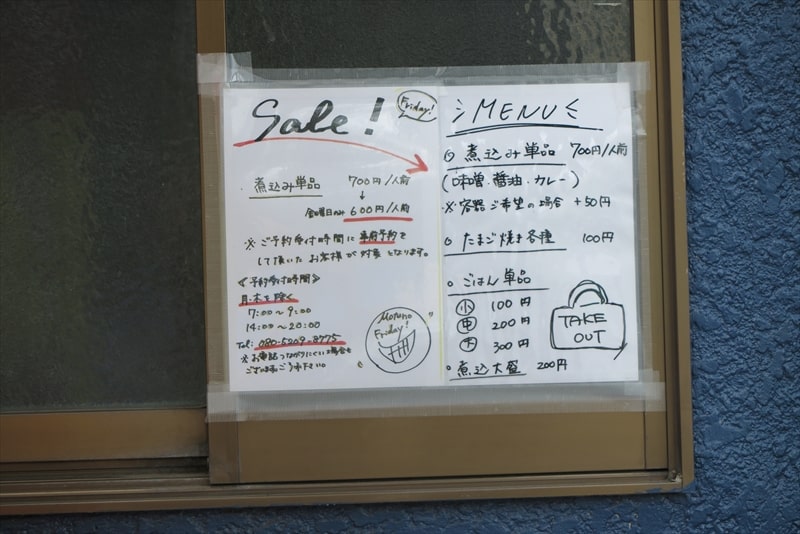 Sale!
Friday!
煮込み単品 700円/人前
↓
金曜日のみ 600円/人前
※ご予約受付時間に事前予約を
して頂いたお客様が対象となります。
≪予約受付時間≫
月・木を除く
7:00～9:00
14:00～20:00
Tel: 080-5209-8775
※お電話つながりにくい場合も
ございますがご了承下さい。
Friday!
MENU
煮込み単品 700円/人前
(味噌・醤油・カレー)
※容器ご希望の場合 +50円
たまご焼き各種 100円
ごはん単品
小 100円
中 200円
大 300円
煮込大盛 200円
TAKE
OUT